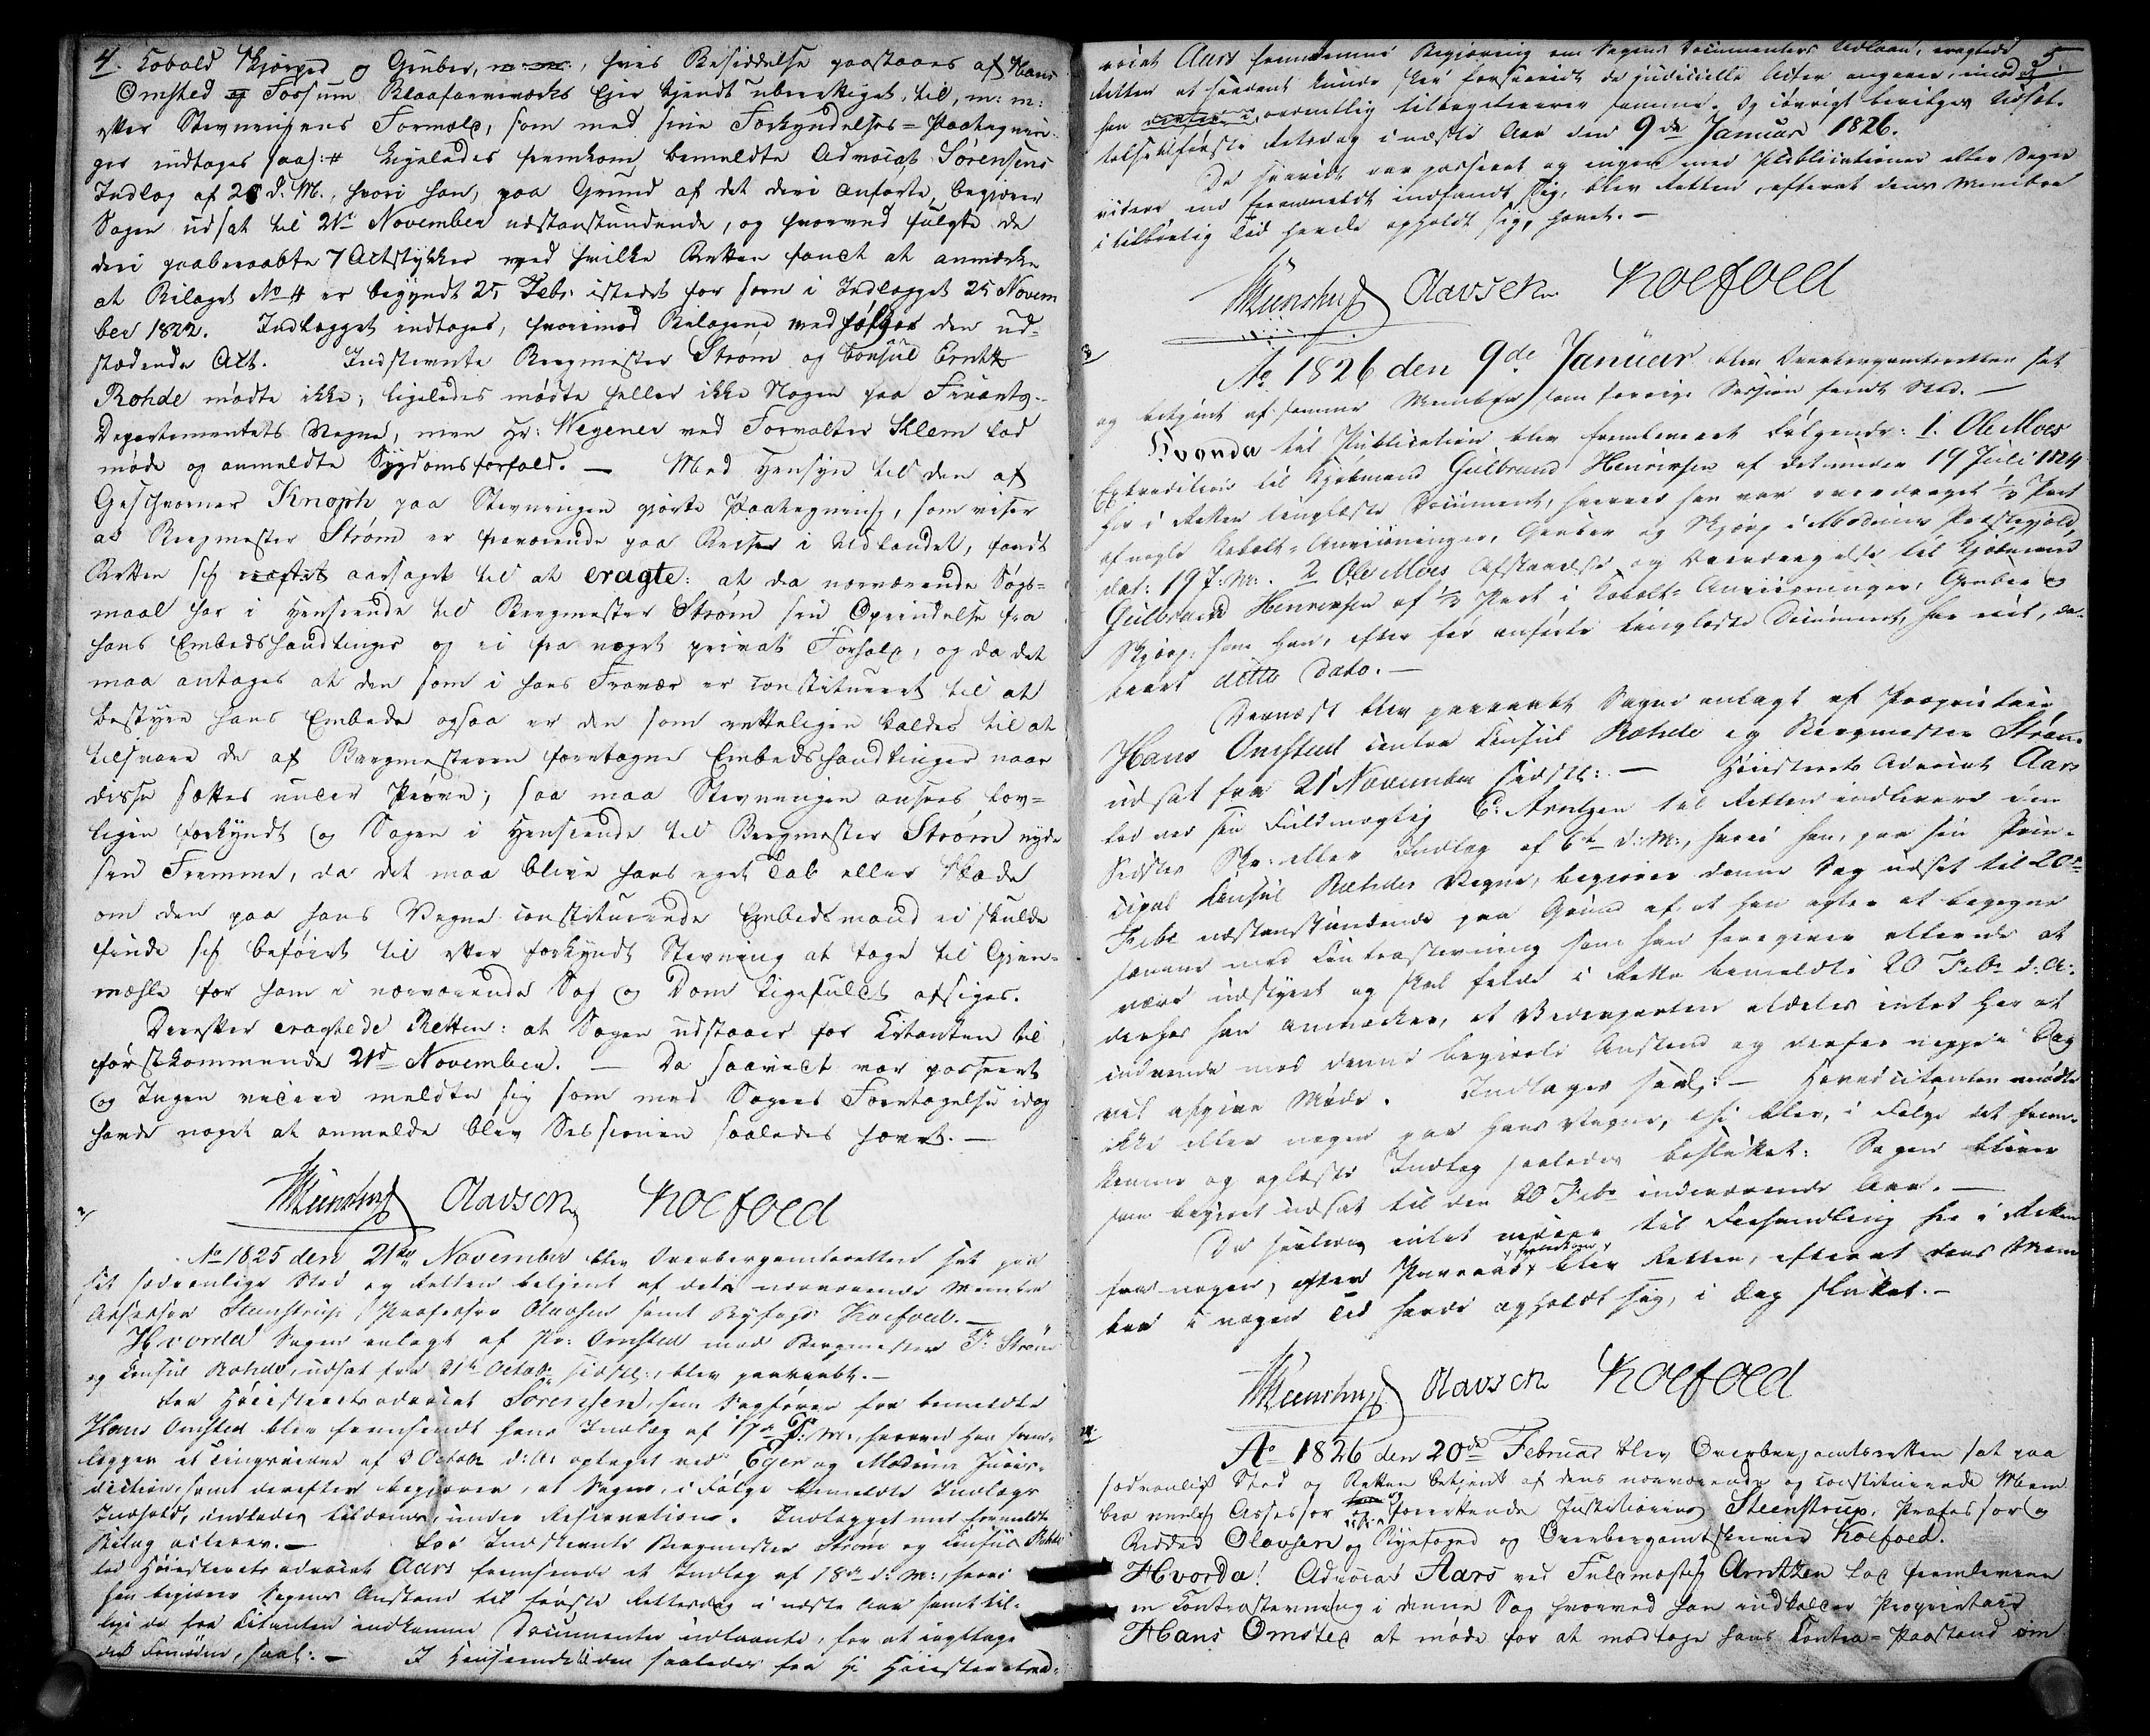 4. Kobald Skjærped og Gruber, m: m:, hvis Besiddelse paastaaes af Hans
Omsted og Fossum Blaafarveværks Eier kjendt uberettiget, til, m: m:
efter Stevningens Formæle, som med sine Forkyndelses=Paategnin-
ger indtages saal: # Ligeledes fremkom bemeldte Advocat Sørensens
Indlæg af 20 d: M:, hvori han, paa Grund af det deri anførte, begjærer
Sagen udsat til 21de November næstanstundende, og hvorved fulgte de
deri paaberaabte 7 Actstykker ved hvilke Retten fandt at anmærke
at Bilaget No 4 er begyndt 25 Feb: istedet for som i Indlægget 25 Novem
ber 1822. Indlægget indtages, hvorimod Bilagene vedhæfter den ud-
stædende Act. Indstevnte Bergmester Strøm og Consul Erntz
Rohde mødte ikke; ligeledes mødte heller ikke Nogen paa Finants-
Departementets Vegne, men Hr: Wegener ved Forvalter Klem lod
møde og anmeldte Sygdomsforfald. — Med Hensyn til den af
Geschworner Knoph paa Stevningen gjorte Paategning, som viser
at Bergmester Strøm er fraværende paa Reiser i Udlandet, fandt
Retten sig aarsaget til at eragte: at da nærværende Søgs-
maal har i Henseende til Bergmester Strøm sin Oprindelse fra
hans Embedshandlinger og ei fra noget privat Forhold, og da det
maa antages at den som i hans Fravær er constitueret til at
bestyre hans Embede ogsaa er den som retteligen kaldes til at
tilsvare de af Bergmesteren foretagne Embedshandlinger naar
disse sættes under Prøve; saa maa Stevningen ansees lov-
ligen forkyndt og Sagen i Henseende til Bergmester Strøm nyde
sin Fremme, da det maa blive hans eget Tab eller Skade
om den paa hans Vegne constituerede Embedsmand ei skulde
finde sig beføiet til efter forkyndt Stevning at tage til Gjen-
mæhle for ham i nærværende Sag og Dom ligefuldt afsiges.
Derefter eragtede Retten: at Sagen udstaaer for Citanten til
førstkommende 21de November. — Da saavidt var passeret
og Ingen videre meldte sig som med Sagers Foretagelse idag
havde noget at anmelde blev Sessionen saaledes hævet. —
Steenstrup Olavsen Koefoed
Ao 1825 den 21de November blev Overbergamtsretten sat paa
sit sædvanlige Sted og Retten betjent af dets nærværende Membre
Assessor Steenstrup, Professor Olavsen samt Byfoged Koefoed. —
Hvorda Sagen anlagt af Pr: Omsted mod Bergmester Strøm
og Consul Rohde, udsat fra 21de Octob: sidstl:, blev paaraabt. —
Fra Høiesteretsadvocat Sørensen, som Sagfører for bemeldte
Hans Omsted blev fremsendt hans Indlæg af 17de d: M:, hvorved han frem-
lægger et Tingsvidne af 3 Octob: d: A: optaget ved Eger og Modums Juris-
diction, samt derefter begjærer, at Sagen, i Følge bemeldte Indlægs
Indhold, indlades til Doms, under Reservation. Indlægget med formeldte
Bilag acteres. — For Indstevnte Bergmester Strøm og Consul Rohde
lod Høiesteretsadvocat Aars fremsende et Indlæg af 18de d: M:, hvori
han begjærer Sagens Anstand til første Retsdag i næste Aar samt til-
lige de fra Citanten indkomne Documenter udlaante, for at iagttage
det Fornødne, saal: — I Henseende til den saaledes fra Hr Høiesteretsad-
5.
vocat Aars fremkomne Begjæring om Sagens Documenters Udlaan, eragtede
Retten at saadant kunde skee forsaavidt de judicielle Acter angaaer, imod at
han ordentlig tilbageleverer samme. Og iøvrigt bevilges Udsæt-
telse til første Retsdag i næste Aar den 9de Januar 1826.
Da saavidt var passeret og ingen med Publicationer eller Sager
videre end formeldt indfandt sig, blev Retten, efterat dens Membre
i tilbørlig Tid havde opholdt sig, hævet. —
Steenstrup Olavsen Koefoed
Ao 1826 den 9de Januar blev Overbergamtsretten sat
og betjent af samme Membre som forrige Session samt Sted. —
Hvorda til Publication blev fremleveret Følgende: 1. Ole Moes
Extradition til Kjøbmand Gulbrand Henriksen af det under 19 Juli 1824
her i Retten tinglæste Document, hvorved han var overdraget 1/3 Part
af nogle Kobolt=Anviisninger, Gruber og Skjærp i Modums Præstegjeld,
dat: 19 f: M:. 2 Ole Moes Afstaaelse og Overdragelse til Kjøbmand
Gulbrand Henriksen af 1/3 Part i Kobolt=Anviisninger, Gruber og
Skjærp, som han, efter før anførte tinglæste Document, har eiet, da-
teret ditto Dato. —
Dernæst blev paaraabt Sagen anlagt af Proprietair
Hans Omsted contra Consul Rohde og Bergmester Strøm
udsat fra 21 November sidstl: — Høiesterets Advocat Aars
lod ved sin Fuldmægtig C: Arntzen til Retten indlevere den
Sidstes Skr: eller Indlæg af 6te d: M:, hvori han, paa sin Prin-
cipal Consul Rohdes Vegne, begjærer denne Sag udsat til 20de
Febr næstanstundende paa Grund af at han agter at begegne
samme med Contrastevning som han foregiver allerede at
være udstyret og skal falde i Rette bemeldte 20 Febr d: A:
derhos han anmærker, at Vederparten aldeles intet har at
indvende mod denne begjærte Anstand og derfor neppe i Dag
vil afgive Møde. Indtages saal: — Hovedcitanten mødte
ikke eller nogen paa hans Vegne, thi blev, i Følge det frem-
komne og oplæste Indlæg saaledes besluttet: Sagen bliver
som begjæret udsat til den 20 Febr indeværende Aar. —
Da saaledes intet videre til Forhandling her i Retten
fra nogen, efter Paaraab, fremkom blev Retten, efterat dens Mem
bre i nogen Tid havde opholdt sig, i Dag sluttet. —
Steenstrup Olavsen Koefoed
Ao 1826 den 20de Februar blev Overbergamtsretten sat paa
sædvanligt Sted og Retten betjent af dens nærværende og constituerede Mem
bre nemlig Assessor og Foresittende Justitiarius Steenstrup, Professor og
Ridder Olavsen og Byefoged og Overbergamtskriver Koefoed.
Hvorda! Advocat Aars ved Fuldmægtig Arntzen lod fremlevere
en Contrastevning i denne Sag hvorved han indkalder Proprietair
Hans Omsted at møde for at modtage hans Contra=Paastand om